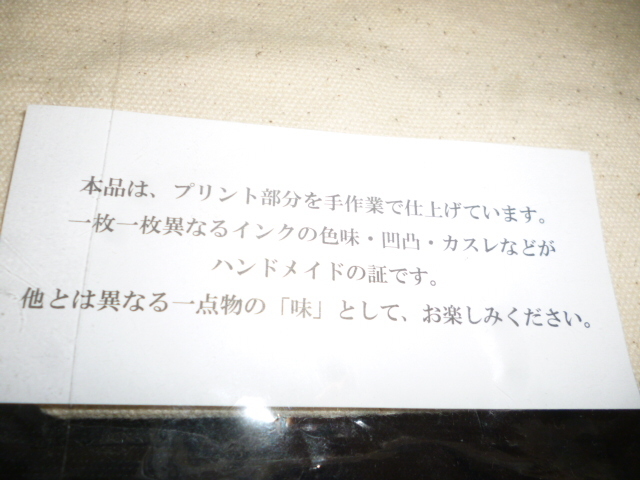 本品は、プリント部分を手作業で仕上げています。
一枚一枚異なるインクの色味・凹凸・カスレなどが
ハンドメイドの証です。
他とは異なる一点物の「味」として、お楽しみください。